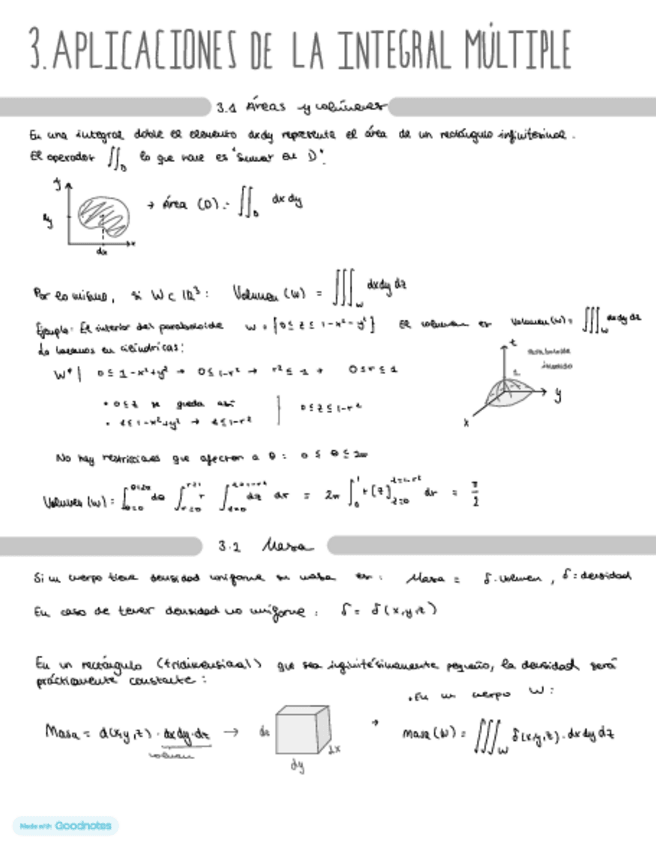 3. APLICACIONES DE LA INTEGRAL MÚLTIPLE
3.1 Áreas y volúmenes
En una integral doble el elemento dxdy representa el área de un rectángulo infinitesimal.
El operador ∬_D lo que hace es "sumar en D".
y
dy
dx
x
→ Área (D) = ∬_D dx dy
Por lo mismo, si W ⊂ ℝ³: Volumen (W) = ∭_W dxdy dz
Ejemplo: El interior del paraboloide W = {0 ≤ z ≤ 1-x²-y²} El volumen es Volumen(W) = ∭_W dxdy dz
Lo hacemos en cilíndricas:
z
paraboloide
1
y
x
W* | 0 ≤ 1-x²+y² → 0 ≤ 1-r² → r² ≤ 1 → 0 ≤ r ≤ 1
• 0 ≤ z se queda así
• z ≤ 1-x²+y² → z ≤ 1-r²
0 ≤ z ≤ 1-r²
No hay restricciones que afecten a θ: 0 ≤ θ ≤ 2π
Volumen (W) = ∫_{θ=0}^{θ=2π} dθ ∫_{r=0}^{r=1} r ∫_{z=0}^{z=1-r²} dz dr = 2π ∫_0^1 r [z]_{z=0}^{z=1-r²} dr = π/2
3.2 Masa
Si un cuerpo tiene densidad uniforme su masa es: Masa = δ·volumen, δ = densidad
En caso de tener densidad no uniforme: δ = δ(x,y,z)
En un rectángulo (tridimensional) que sea infinitésimamente pequeño, la densidad será
prácticamente constante:
• En un cuerpo W:
Masa = d(x,y,z) · dxdy·dz →
volumen
dz
dy
dx
→
masa(W) = ∭_W δ(x,y,z)·dxdydz
Made with Goodnotes